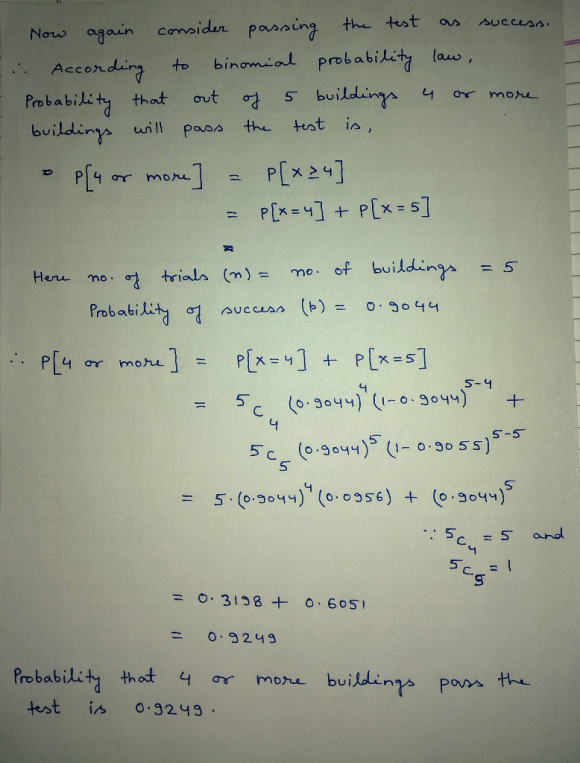 Now again consider passing the test as success.
∴ According to binomial probability law,
Probability that out of 5 buildings 4 or more
buildings will pass the test is,
P[4 or more] = P[x ≥ 4]
= P[x=4] + P[x=5]
Here no. of trials (n) = no. of buildings = 5
Probability of success (p) = 0.9044
∴ P[4 or more] = P[x=4] + P[x=5]
= 5C₄ (0.9044)⁴ (1-0.9044)⁵⁻⁴ +
5C₅ (0.9044)⁵ (1-0.9055)⁵⁻⁵
= 5·(0.9044)⁴ (0.0956) + (0.9044)⁵
∵ 5C₄ = 5 and
5C₅ = 1
= 0.3198 + 0.6051
= 0.9249
Probability that 4 or more buildings pass the
test is 0.9249.